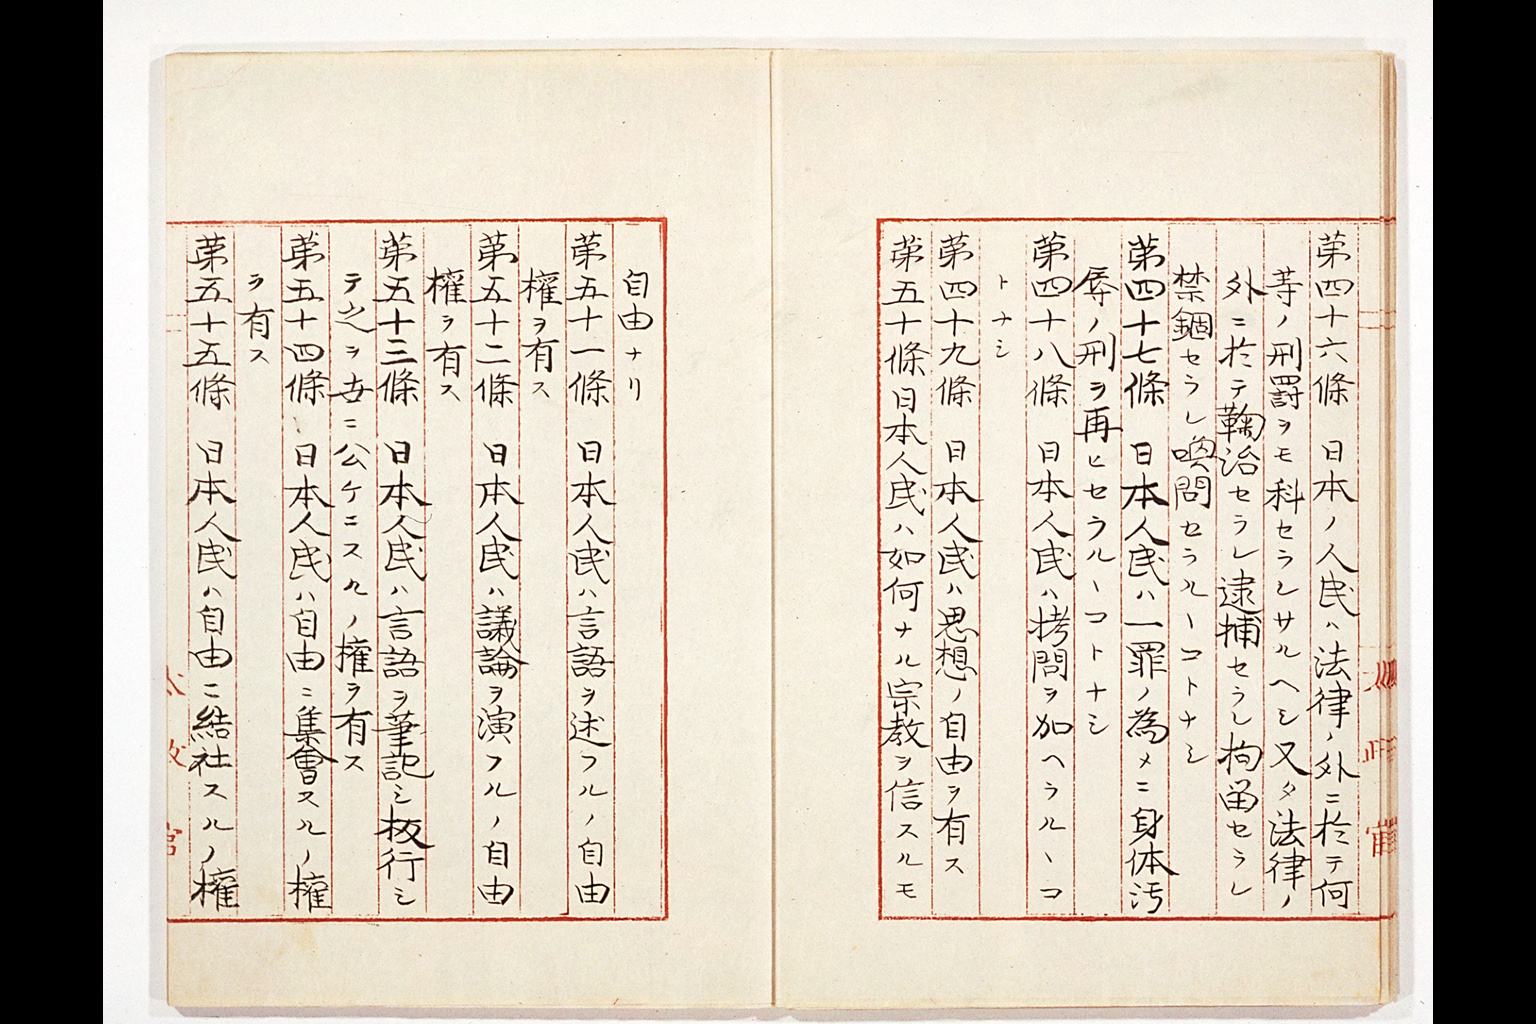 第四十六條　日本ノ人民ハ法律ノ外ニ於テ何
等ノ刑罰ヲモ科セラレサルヘシ又タ法律ノ
外ニ於テ鞠治セラレ逮捕セラレ拘留セラレ
禁錮セラレ喚問セラルヽコトナシ
第四十七條　日本人民ハ一罪ノ為メニ身体汚
辱ノ刑ヲ再ヒセラルヽコトナシ
第四十八條　日本人民ハ拷問ヲ加ヘラルヽコ
トナシ
第四十九條　日本人民ハ思想ノ自由ヲ有ス
第五十條　日本人民ハ如何ナル宗教ヲ信スルモ
自由ナリ
第五十一條　日本人民ハ言語ヲ述フルノ自由
権ヲ有ス
第五十二條　日本人民ハ議論ヲ演フルノ自由
権ヲ有ス
第五十三條　日本人民ハ言語ヲ筆記シ板行シ
テ之ヲ世ニ公ケニスルノ権ヲ有ス
第五十四條　日本人民ハ自由ニ集會スルノ権
ヲ有ス
第五十五條　日本人民ハ自由ニ結社スルノ権
太政官